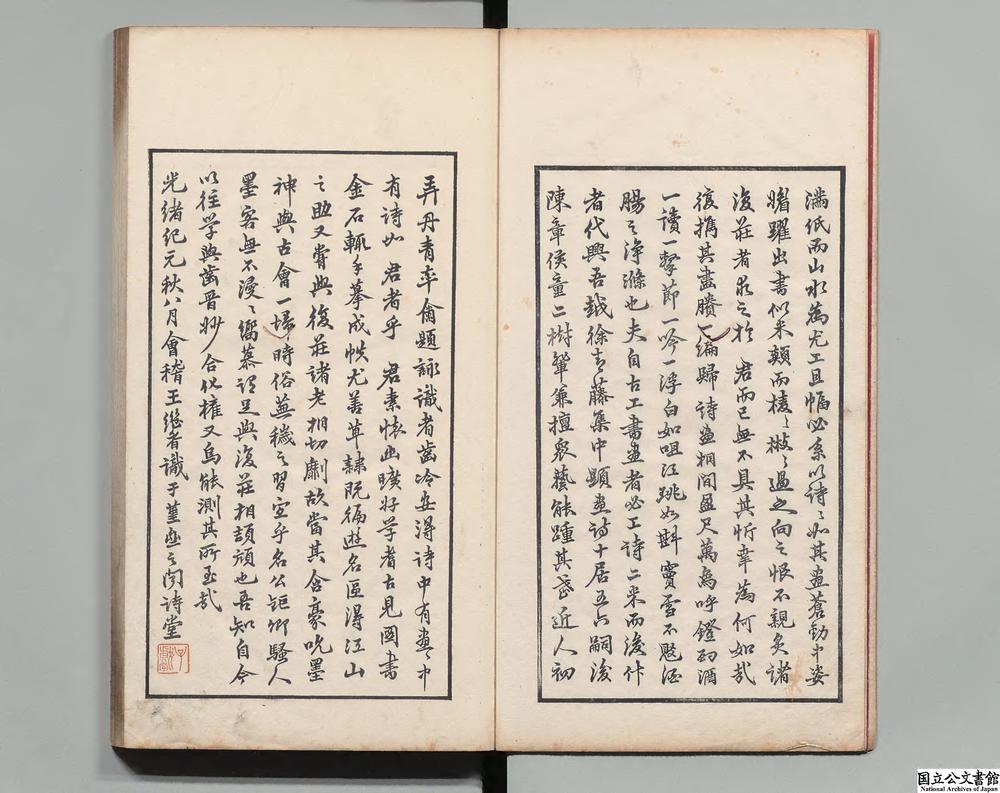 滿紙而山水為尤工且幅必系以詩〻如其畫蒼勁中姿
媚躍出書似米顛而棱〻
復莊者求之於 君而已無不具其忻幸為何如哉
復攜其畫賸一編歸詩畫相間盈尺萬為呼鐙酌酒
一讀一擊節一吟一浮白如咀江跳如斟竇雪不覺酒
腸之淨滌也夫自古工書畫者必工詩二米而後作
者代興吾越徐青藤集中題畫詩十居五六嗣後
陳章侯童二樹輩兼擅衆藝能踵其武近人初
弄丹青率爾題詠識者齒冷安得詩中有畫〻中
有詩如 君者乎 君素懷幽曠好學耆古見圖書
金石輒手摹成帙尤善草隸既徧遊名區得江山
之助又嘗與復莊諸老相切劘故當其含豪吮墨
神與古會一埽時俗蕪穢之習宜乎名公鉅卿騷人
墨客無不浸〻嚮慕謂足與復莊相頡頏也吾知自今
以往學與齒晋妙合化權又烏能測其所至哉
光緒紀元秋八月會稽王繼香識于堇廬之問詩堂
国立公文書館
National Archives of Japan